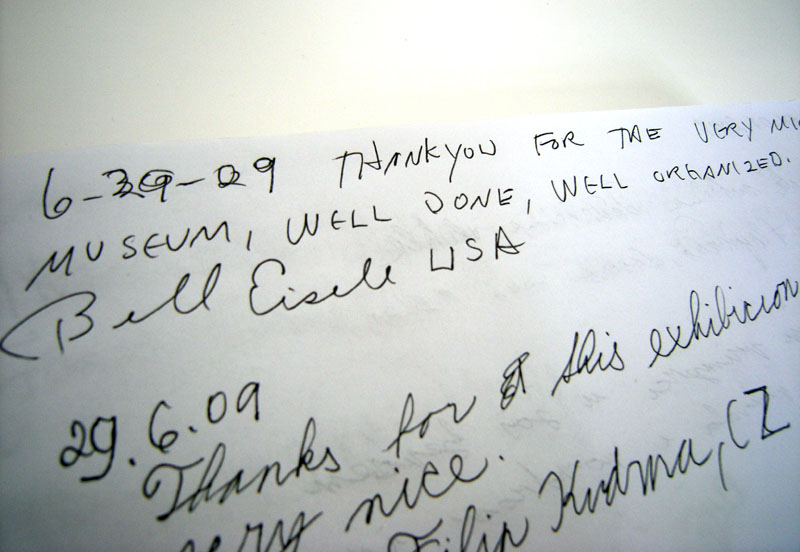 6-29-09 THANKYOU FOR THE VERY NIC
MUSEUM, WELL DONE, WELL ORGANIZED.
Bill Eisele USA
29.6.09
Thanks for this exhibicion
very nice.
Filip Kudrna, CZ